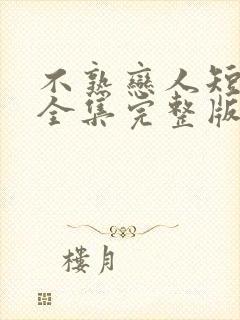 不熟戀人短
全集完整版
樓月